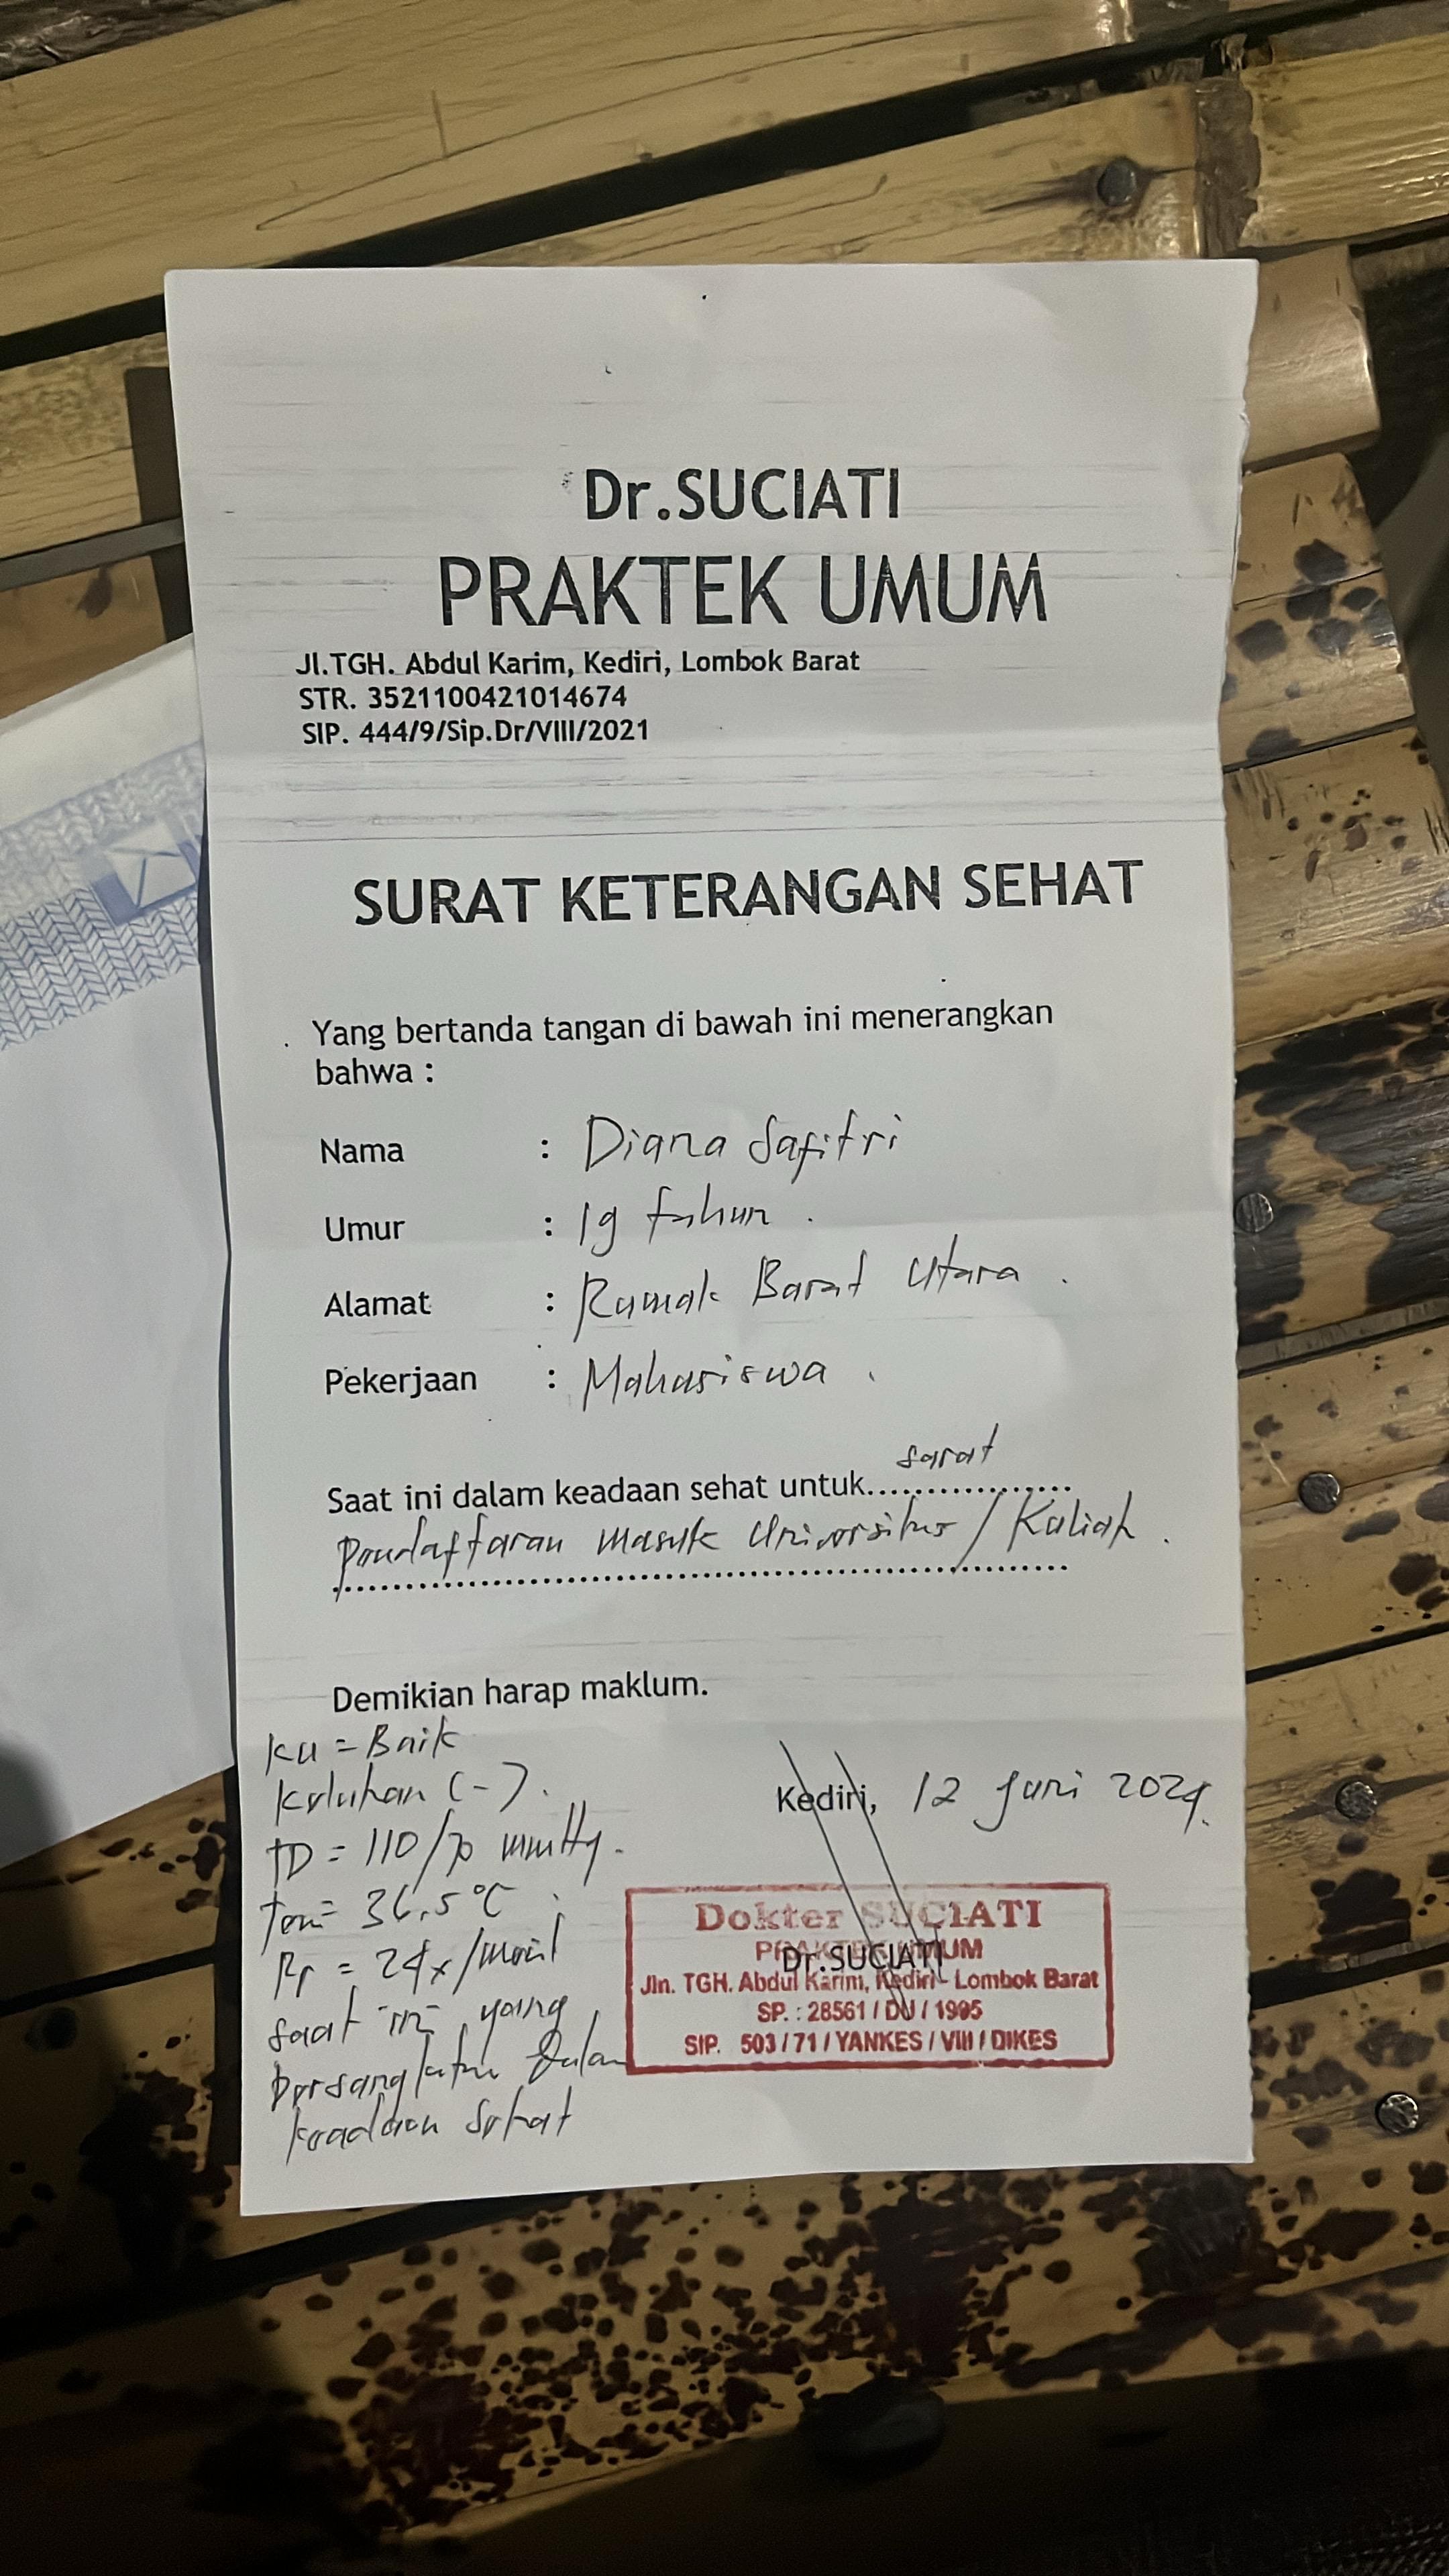 Dr.SUCIATI
PRAKTEK UMUM
Jl.TGH. Abdul Karim, Kediri, Lombok Barat
STR. 3521100421014674
SIP. 444/9/Sip.Dr/VIII/2021
SURAT KETERANGAN SEHAT
Yang bertanda tangan di bawah ini menerangkan
bahwa :
Nama : Diana Safitri
Umur : 19 tahun .
Alamat : Rumak Barat Utara .
Pekerjaan : Mahasiswa .
Saat ini dalam keadaan sehat untuk.................. sarat
Pendaftaran masuk Universitas / Kuliah .
Demikian harap maklum.
KU = Baik
Keluhan (-) .
TD = 110/70 mmHg .
Tem = 36,5 °C .
Rr = 24x/menit
saat ini yang
bersangkutan dalam
keadaan sehat
Kediri, 12 Juni 2024.
Dokter SUCIATI
PRAKTEK UMUM
Dr.SUCIATI
Jln. TGH. Abdul Karim, Kediri - Lombok Barat
SP. : 28561 / DU / 1995
SIP. 503 / 71 / YANKES / VIII / DIKES